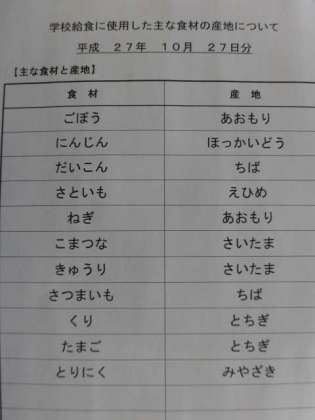 学校給食に使用した主な食材の産地について
平成 27年 10月 27日分
【主な食材と産地】
食 材 産 地
ごぼう あおもり
にんじん ほっかいどう
だいこん ちば
さといも えひめ
ねぎ あおもり
こまつな さいたま
きゅうり さいたま
さつまいも ちば
くり とちぎ
たまご とちぎ
とりにく みやざき